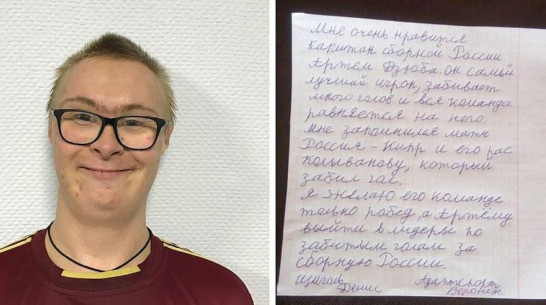 Мне очень нравится
капитан сборной России
Артём Дзюба он самый
лучший игрок, забивает
много голов и вся команда
равняется на него.
Мне запомнился матч
Россия - Кипр и его пас
который
забил гол.
Я желаю его команде
только побед, а Артёму
выйти в лидеры по
забитым голам за
сборную России.
Денис
Воронеж